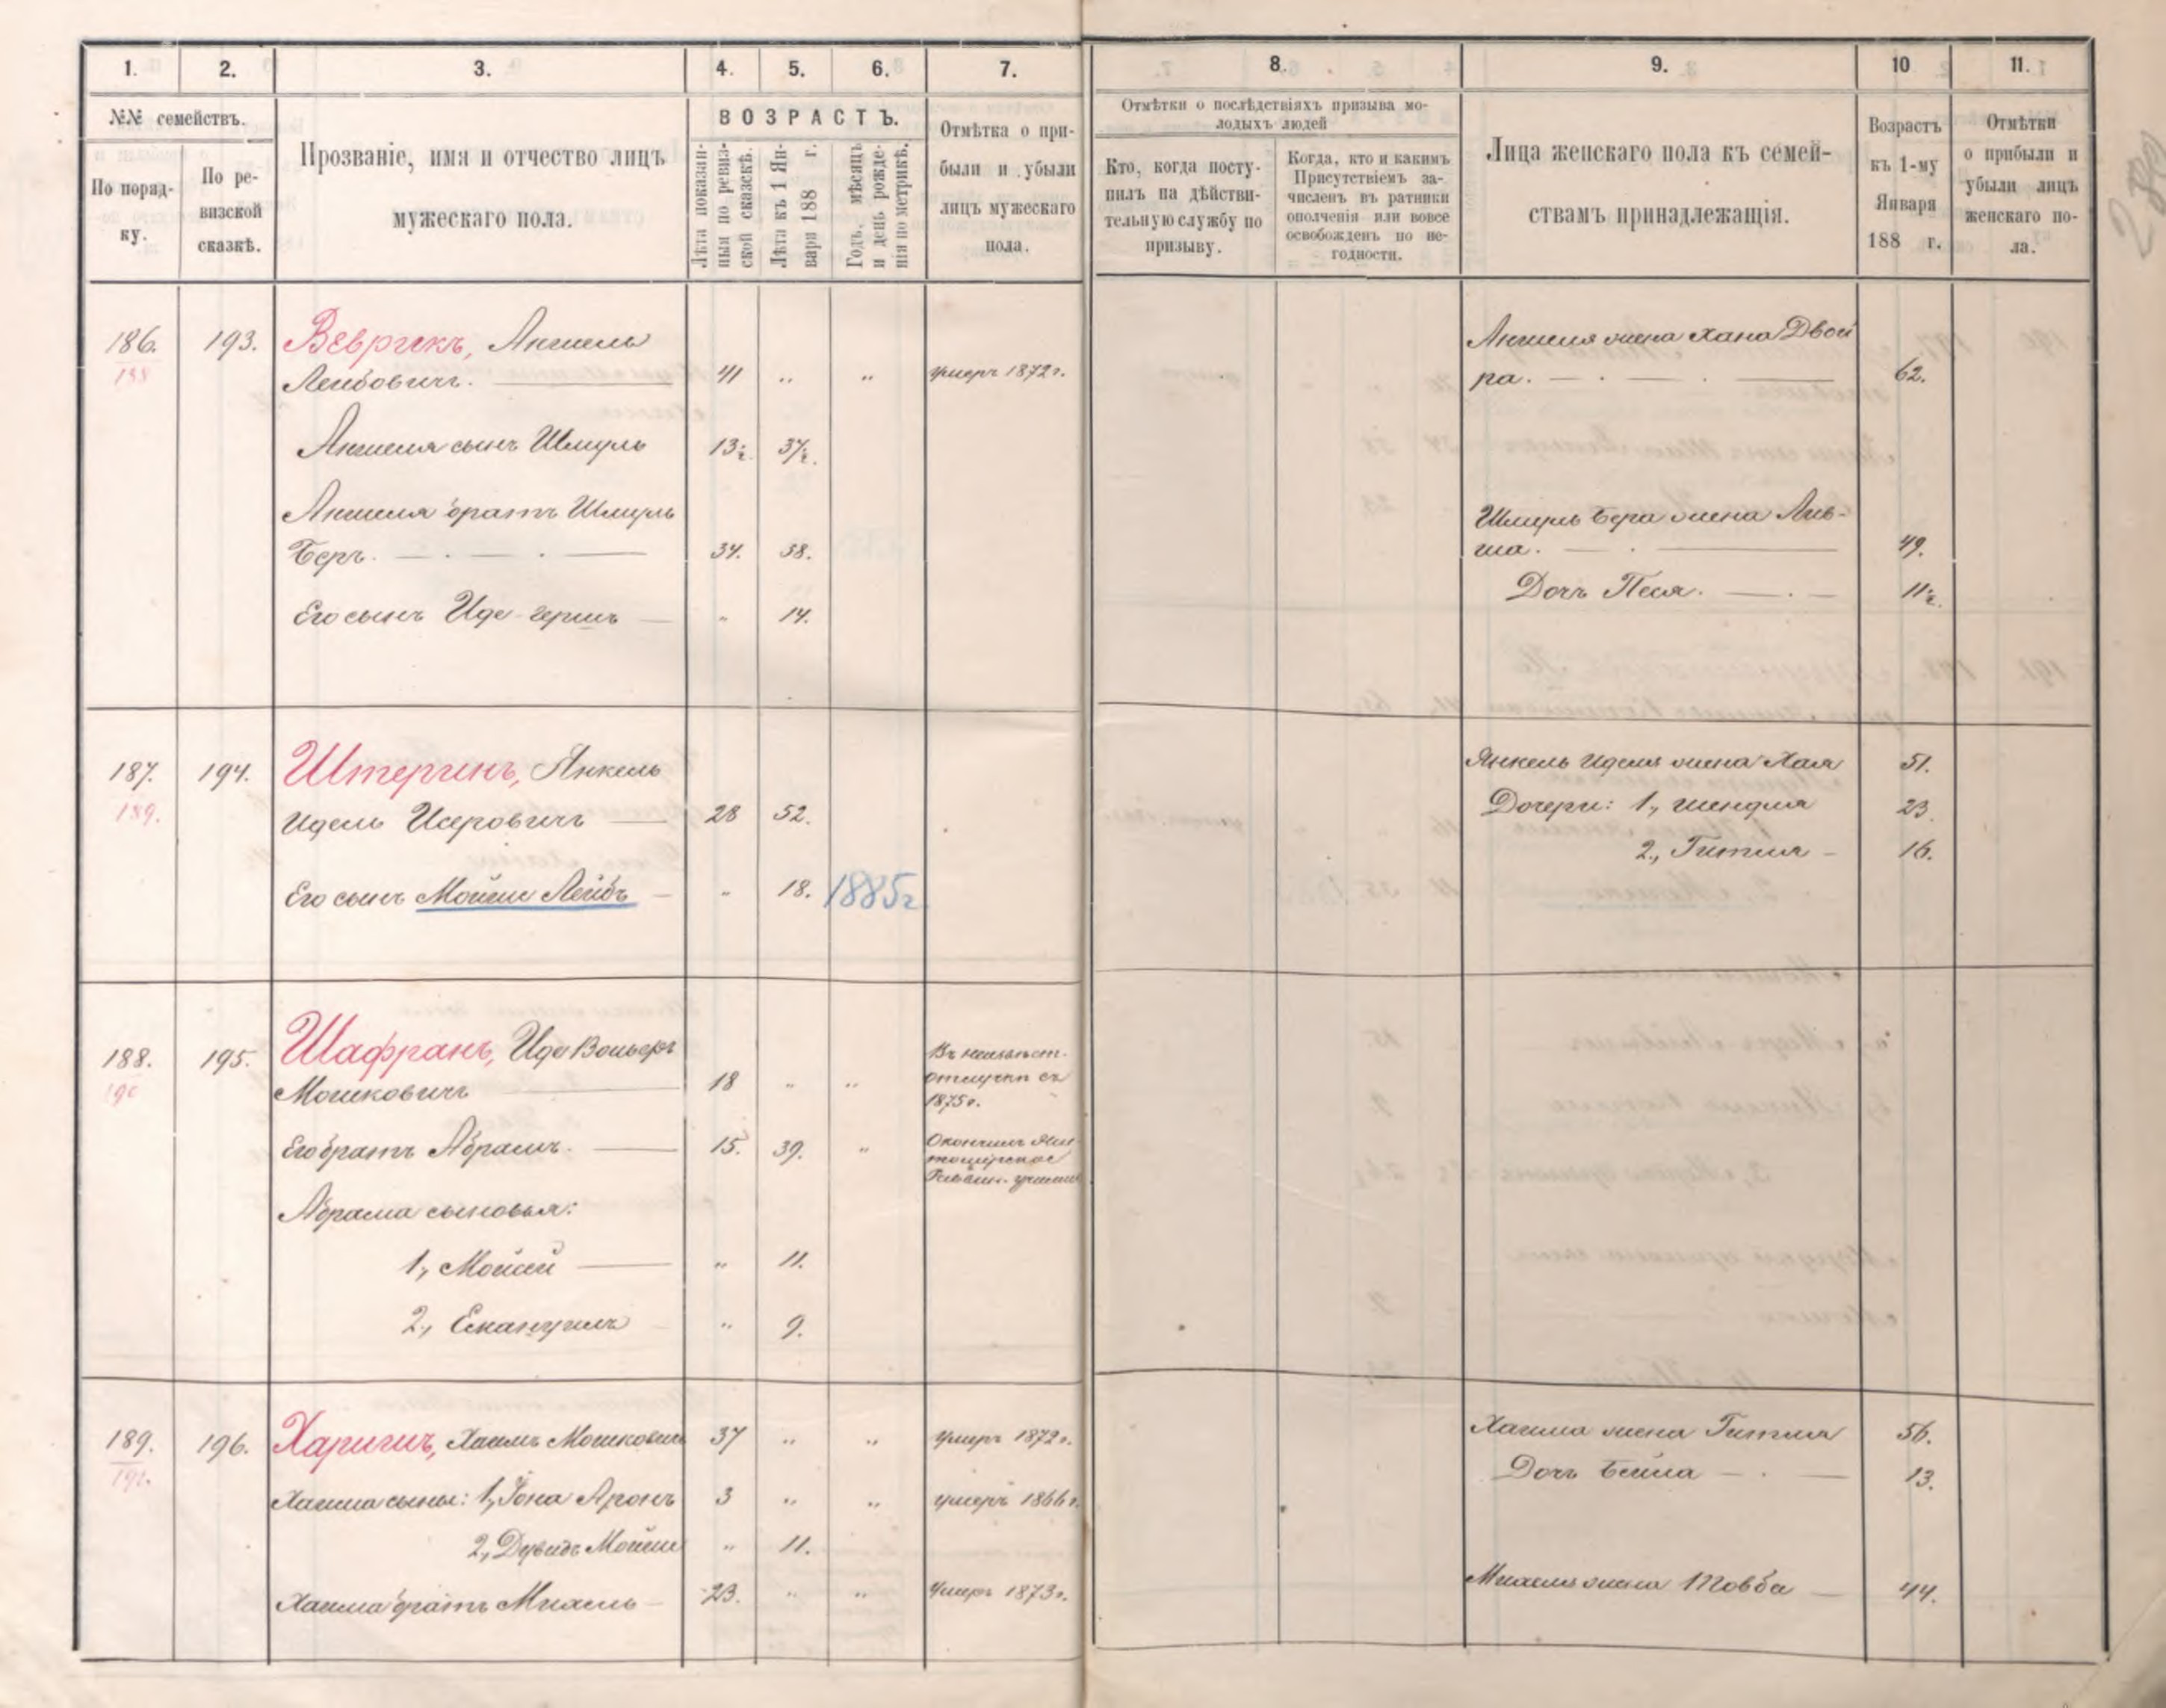 1. 2. 3. 4. 5. 6. 7. 8. 9. 10 11.
№№ семействъ.
По порядку.
По ревизской сказкѣ.
Прозваніе, имя и отчество лицъ
мужескаго пола.
ВОЗРАСТЪ.
Лѣта показан-
ныя по ревиз-
ской сказскѣ.
Лѣта къ 1 Ян-
варя 188 г.
Годъ, мѣсяцъ
и день рожде-
нія по метрикѣ.
Отмѣтка о при-
были и убыли
лицъ мужескаго
пола.
Отмѣтки о послѣдствіяхъ призыва мо-
лодыхъ людей
Кто, когда посту-
пилъ на дѣйстви-
тельную службу по
призыву.
Когда, кто и какимъ
Присутствіемъ за-
численъ въ ратники
ополченія или вовсе
освобожденъ по не-
годности.
Лица женскаго пола къ семей-
ствамъ принадлежащія.
Возрастъ
къ 1-му
Января
188 г.
Отмѣтки
о прибыли и
убыли лицъ
женскаго по-
ла.
186. 193. Веврикъ, Аншель
188 Лейбовичъ. 41 " " умеръ 1872 г.
Аншеля жена Хана Двой
ра. 62.
Аншеля сынъ Шмуль 13½ 37½.
Аншеля братъ Шмуль
Беръ. 34. 58.
Шмуль Бера жена
49.
Дочь Песя. 11½.
Его сынъ Иде-герш " 14.
187. 194. Штеринъ, Янкель
189. Идель Исеровичъ 28 52.
Янкель Иделя жена Хая 51.
Дочери: 1, Шендля 23.
2, Гитля - 16.
Его сынъ Мойше Лейбъ - " 18. 1885 г
188. 195. Шафранъ, Иде
190 Мошковичъ 18 " "
Въ
отлучки съ
1875 г.
Его братъ Абрамъ. 15. 39. "
Окончилъ
Абрама сыновья:
1, Мойше " 11.
2, Емануилъ " 9.
189. 196. Харишъ, Хаимъ Мошковичъ 37 " " умеръ 1872 г.
191.
Хаима жена Гитля 56.
Дочь Бейла 13.
Хаима сыны: 1, Іона Аронъ 3 " " умеръ 1866 г.
2, Дувидъ Мойше " 11.
Хаима братъ Михель - 23. " " Умеръ 1873 г.
Михеля жена Товба 44.